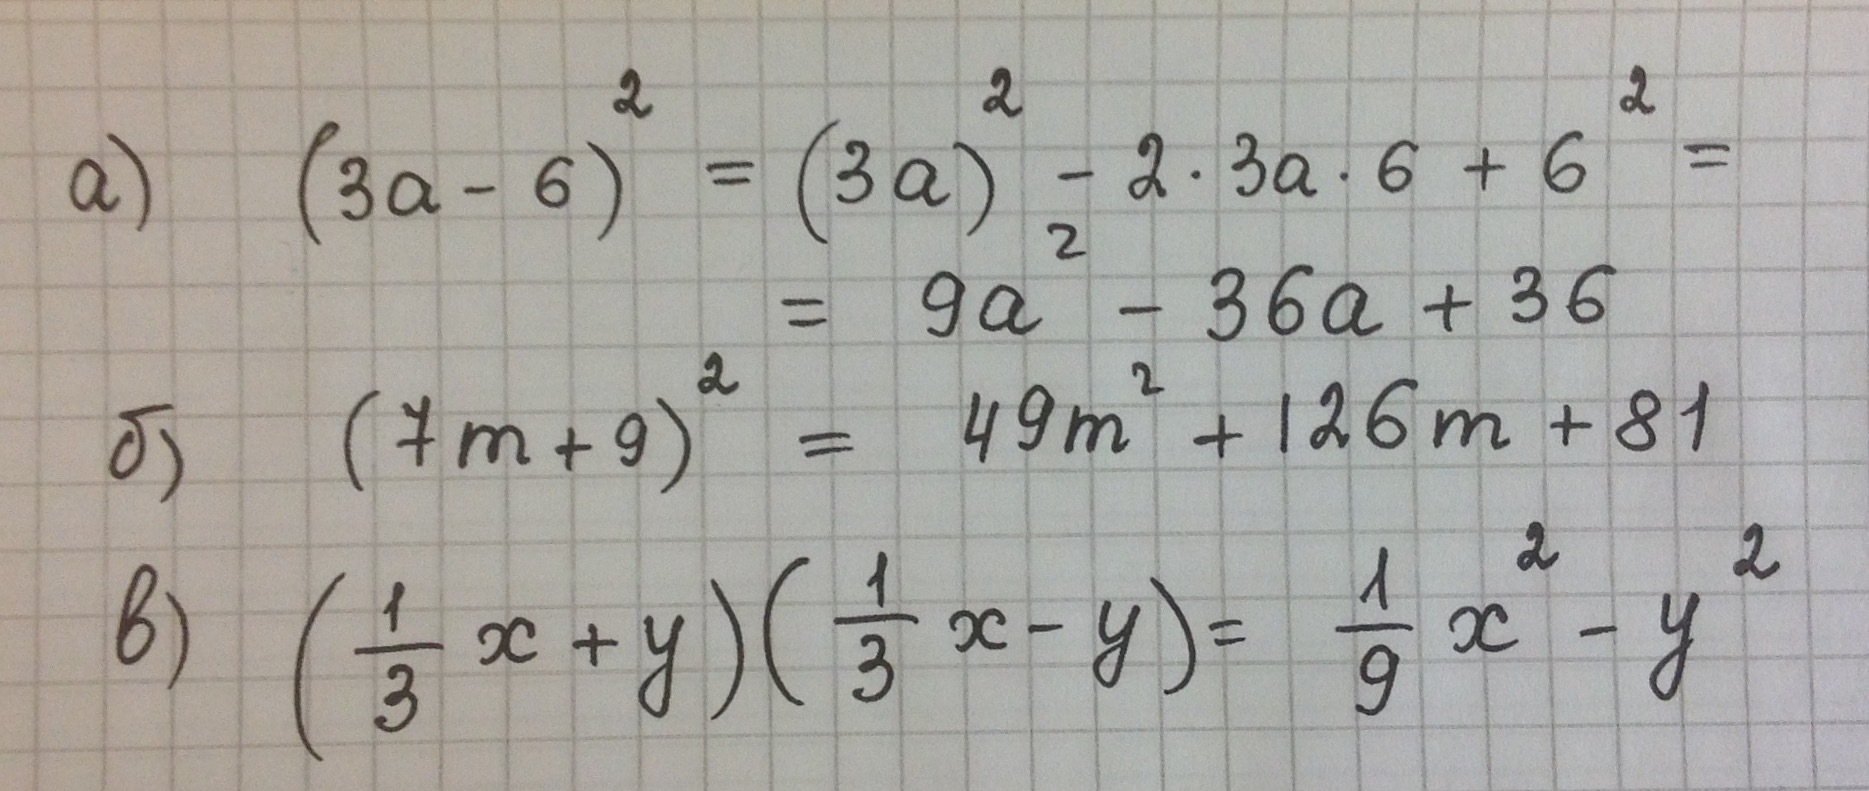 а) (3a - 6)² = (3a)² - 2 · 3a · 6 + 6² =
= 9a² - 36a + 36
б) (7m + 9)² = 49m² + 126m + 81
в) (1/3 x + y)(1/3 x - y) = 1/9 x² - y²